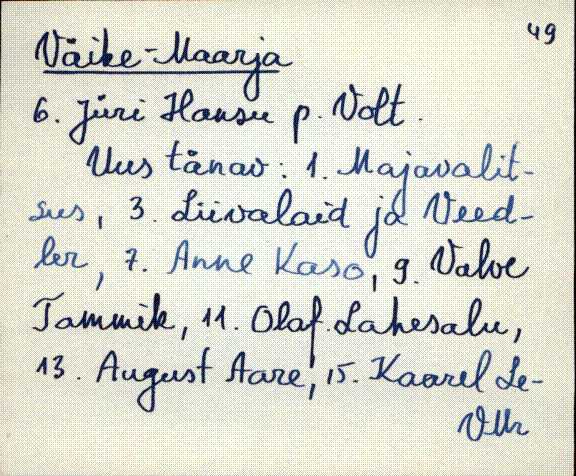 49
Väike-Maarja
6. Jüri Hansu p. Volt.
Uus tänav: 1. Majavalit-
sus, 3. Liivalaid ja Veed-
ler, 7. Anne Kaso, 9. Valve
Tammik, 11. Olaf Lahesalu,
13. August Aare, 15. Kaarel Le-